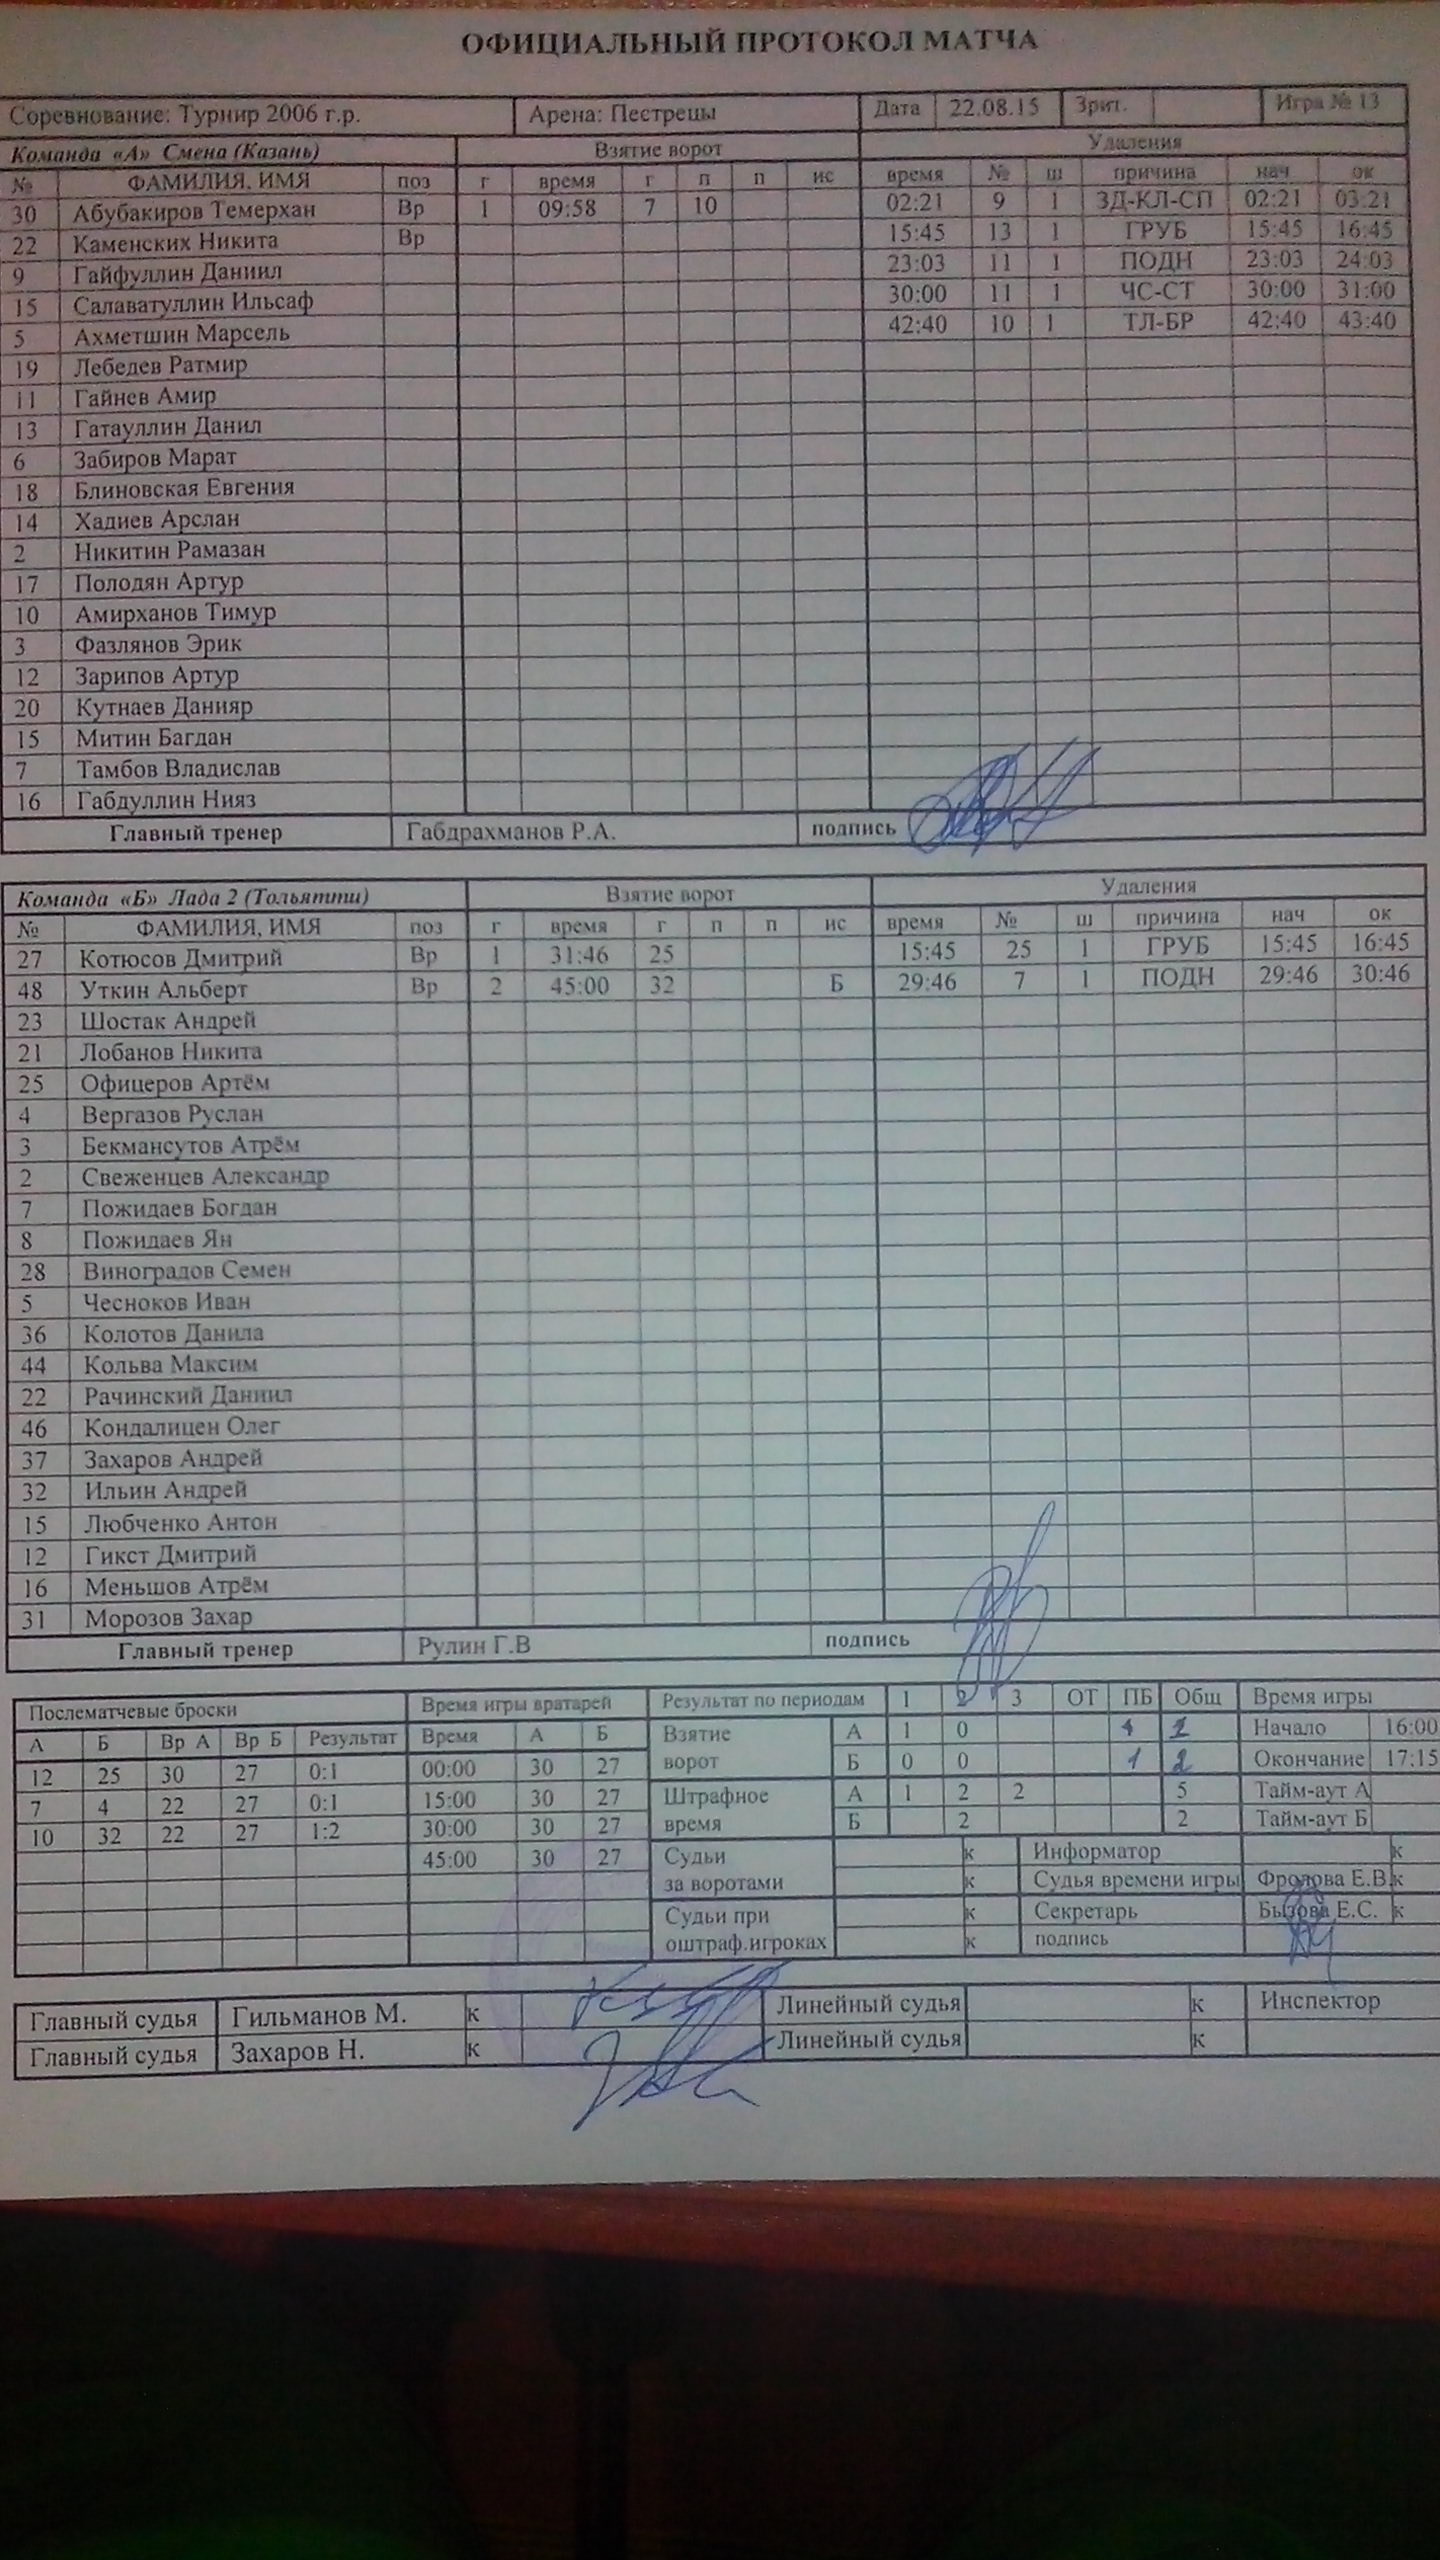 ОФИЦИАЛЬНЫЙ ПРОТОКОЛ МАТЧА
Соревнование: Турнир 2006 г.р. Арена: Пестрецы Дата 22.08.15 Зрит. Игра № 13
Команда «А» Смена (Казань) Взятие ворот Удаления
№ ФАМИЛИЯ, ИМЯ поз г время г п п ис время № ш причина нач ок
30 Абубакиров Темерхан Вр 1 09:58 7 10 02:21 9 1 ЗД-КЛ-СП 02:21 03:21
22 Каменских Никита Вр 15:45 13 1 ГРУБ 15:45 16:45
9 Гайфуллин Даниил 23:03 11 1 ПОДН 23:03 24:03
15 Салаватуллин Ильсаф 30:00 11 1 ЧС-СТ 30:00 31:00
5 Ахметшин Марсель 42:40 10 1 ТЛ-БР 42:40 43:40
19 Лебедев Ратмир
11 Гайнев Амир
13 Гатауллин Данил
6 Забиров Марат
18 Блиновская Евгения
14 Хадиев Арслан
2 Никитин Рамазан
17 Полодян Артур
10 Амирханов Тимур
3 Фазлянов Эрик
12 Зарипов Артур
20 Кутнаев Данияр
15 Митин Багдан
7 Тамбов Владислав
16 Габдуллин Нияз
Главный тренер Габдрахманов Р.А. подпись
Команда «Б» Лада 2 (Тольятти) Взятие ворот Удаления
№ ФАМИЛИЯ, ИМЯ поз г время г п п ис время № ш причина нач ок
27 Котюсов Дмитрий Вр 1 31:46 25 15:45 25 1 ГРУБ 15:45 16:45
48 Уткин Альберт Вр 2 45:00 32 Б 29:46 7 1 ПОДН 29:46 30:46
23 Шостак Андрей
21 Лобанов Никита
25 Офицеров Артём
4 Вергазов Руслан
3 Бекмансутов Атрём
2 Свеженцев Александр
7 Пожидаев Богдан
8 Пожидаев Ян
28 Виноградов Семен
5 Чесноков Иван
36 Колотов Данила
44 Кольва Максим
22 Рачинский Даниил
46 Кондалицен Олег
37 Захаров Андрей
32 Ильин Андрей
15 Любченко Антон
12 Гикст Дмитрий
16 Меньшов Атрём
31 Морозов Захар
Главный тренер Рулин Г.В подпись
Послематчевые броски Время игры вратарей Результат по периодам 1 2 3 ОТ ПБ Общ Время игры
А Б Вр А Вр Б Результат Время А Б Взятие А 1 0 1 Начало 16:00
12 25 30 27 0:1 00:00 30 27 ворот Б 0 0 1 2 Окончание 17:15
7 4 22 27 0:1 15:00 30 27 Штрафное А 1 2 2 5 Тайм-аут А
10 32 22 27 1:2 30:00 30 27 время Б 2 2 Тайм-аут Б
45:00 30 27 Судьи к Информатор к
за воротами к Судья времени игры Фролова Е.В. к
Судьи при к Секретарь Бызова Е.С. к
оштраф.игроках к подпись
Главный судья Гильманов М. к Линейный судья к Инспектор
Главный судья Захаров Н. к Линейный судья к